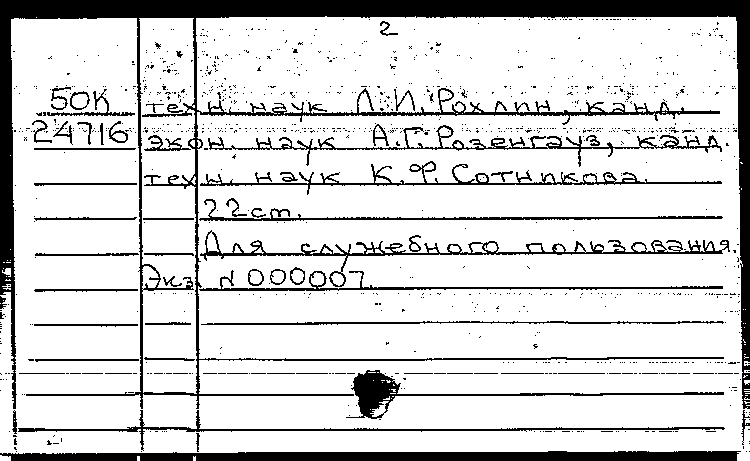 2
50К техн. наук Л.И. Рохлин, канд.
24716 экон. наук А.Г. Розенгауз, канд.
техн. наук К.Ф. Сотникова.
22 ст.
Для служебного пользования.
Экз. N 000007.